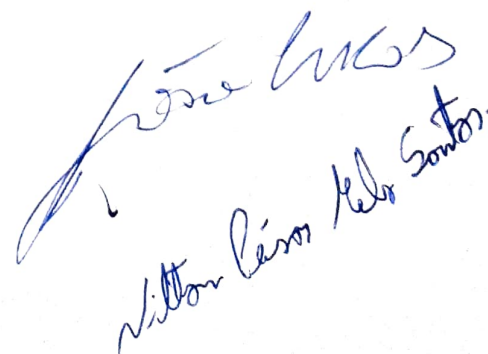 José Lucas
Nilton César Melo Santos.